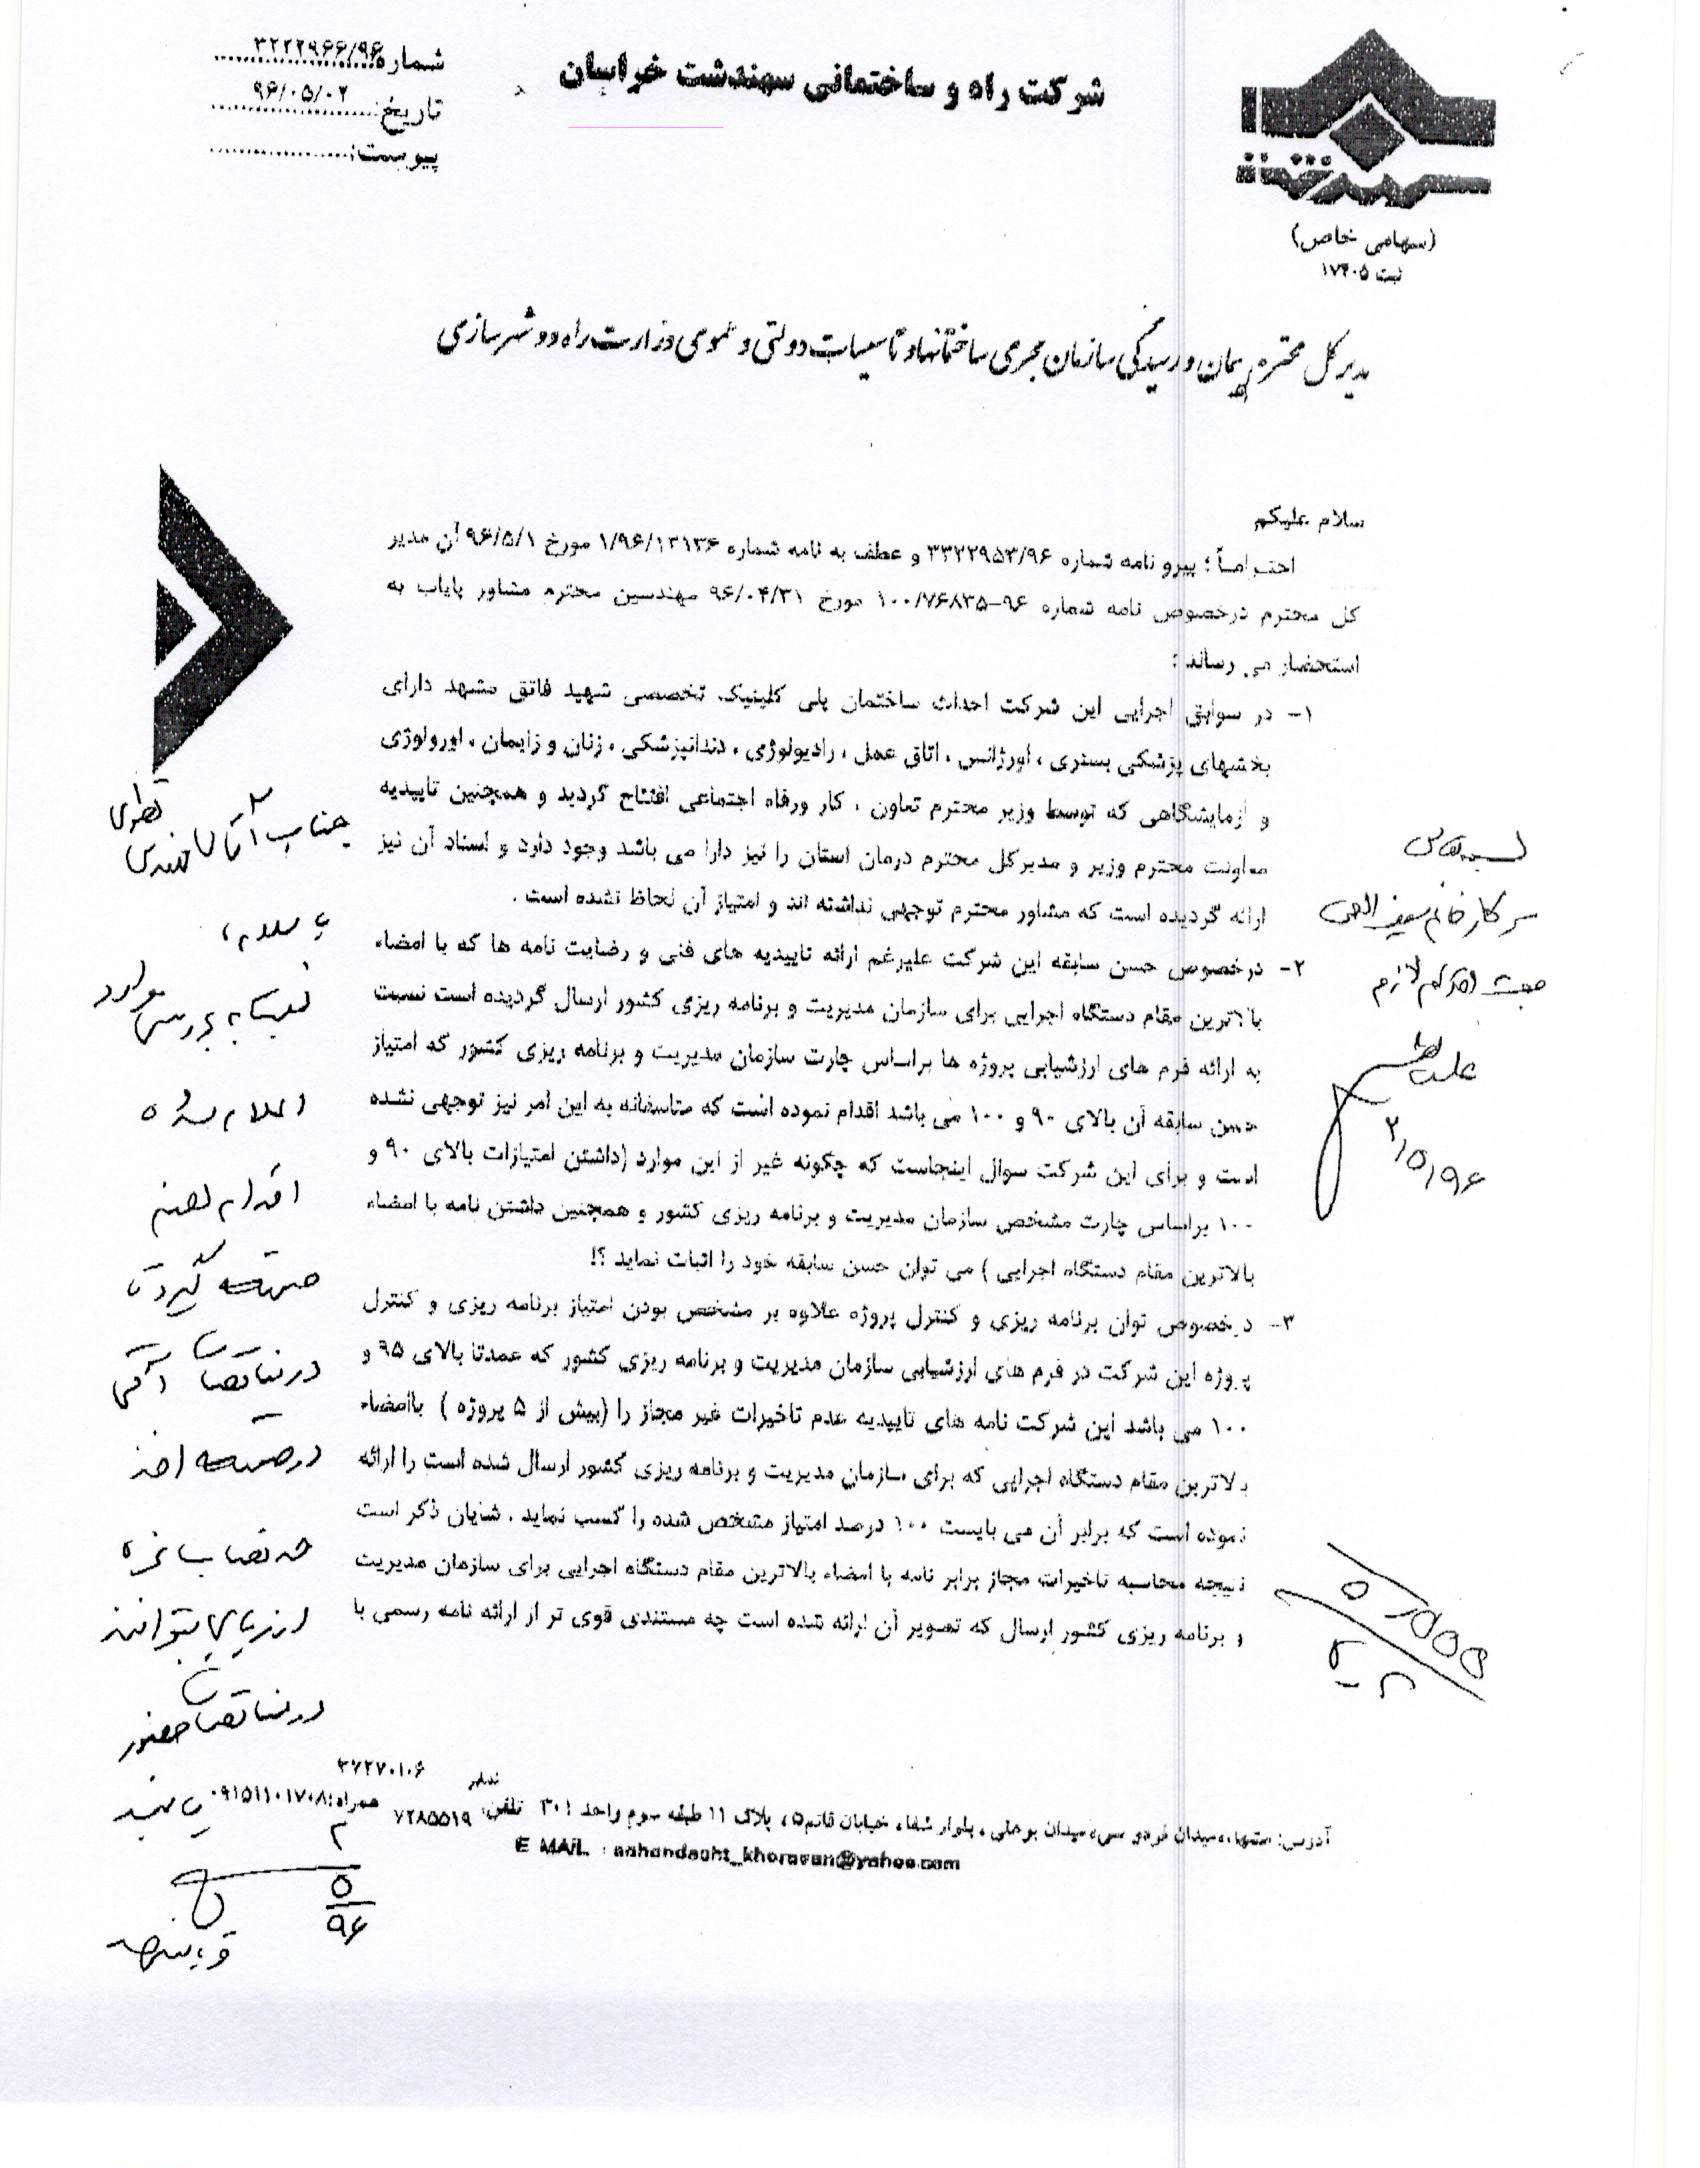 شرکت راه و ساختمانی سهندشت خراسان
شماره ۳۲۲۲۹۶۶/۹۶
تاریخ: ۹۶/۰۵/۰۲
پیوست:
(سهامی خاص)
ثبت ۱۷۴۰۵
مدیرکل محترم پیمان و رسیدگی سازمان مجری ساختمانها و تاسیسات دولتی و عمومی وزارت راه و شهرسازی
سلام علیکم
احتراماً ؛ پیرو نامه شماره ۳۳۲۲۹۵۳/۹۶ و عطف به نامه شماره ۱/۹۶/۱۳۱۳۶ مورخ ۹۶/۵/۱ آن مدیر
کل محترم درخصوص نامه شماره ۹۶-۱۰۰/۷۶۸۳۵ مورخ ۹۶/۰۴/۳۱ مهندسین محترم مشاور پایاب به
استحضار می رساند :
۱- در سوابق اجرایی این شرکت احداث ساختمان پلی کلینیک تخصصی شهید فاتق مشهد دارای
بخشهای پزشکی بستری ، اورژانس ، اتاق عمل ، رادیولوژی ، دندانپزشکی ، زنان و زایمان ، اورولوژی
و آزمایشگاهی که توسط وزیر محترم تعاون ، کار ورفاه اجتماعی افتتاح گردید و همچنین تاییدیه
معاونت محترم وزیر و مدیرکل محترم درمان استان را نیز دارا می باشد وجود دارد و اسناد آن نیز
ارائه گردیده است که مشاور محترم توجهی نداشته اند و امتیاز آن لحاظ نشده است .
۲- درخصوص حسن سابقه این شرکت علیرغم ارائه تاییدیه های فنی و رضایت نامه ها که با امضاء
بالاترین مقام دستگاه اجرایی برای سازمان مدیریت و برنامه ریزی کشور ارسال گردیده است نسبت
به ارائه فرم های ارزشیابی پروژه ها براساس چارت سازمان مدیریت و برنامه ریزی کشور که امتیاز
حسن سابقه آن بالای ۹۰ و ۱۰۰ می باشد اقدام نموده است که متاسفانه به این امر نیز توجهی نشده
است و برای این شرکت سوال اینجاست که چگونه غیر از این موارد (داشتن امتیازات بالای ۹۰ و
۱۰۰ براساس چارت مشخص سازمان مدیریت و برنامه ریزی کشور و همچنین داشتن نامه با امضاء
بالاترین مقام دستگاه اجرایی ) می توان حسن سابقه خود را اثبات نماید ؟!
۳- درخصوص توان برنامه ریزی و کنترل پروژه علاوه بر مشخص بودن امتیاز برنامه ریزی و کنترل
پروژه این شرکت در فرم های ارزشیابی سازمان مدیریت و برنامه ریزی کشور که عمدتا بالای ۹۵ و
۱۰۰ می باشد این شرکت نامه های تاییدیه عدم تاخیرات غیر مجاز را (بیش از ۵ پروژه ) باامضاء
بالاترین مقام دستگاه اجرایی که برای سازمان مدیریت و برنامه ریزی کشور ارسال شده است را ارائه
نموده است که برابر آن می بایست ۱۰۰ درصد امتیاز مشخص شده را کسب نماید . شایان ذکر است
نتیجه محاسبه تاخیرات مجاز برابر نامه با امضاء بالاترین مقام دستگاه اجرایی برای سازمان مدیریت
و برنامه ریزی کشور ارسال که تصویر آن ارائه شده است چه مستندی قوی تر از ارائه نامه رسمی با
سرکار خانم
جهت اقدام لازم
۹۶/۵/۲
جناب آقای مهندس
با سلام،
اعلام شده
اقدام لازم
صورت گیرد تا
در صورت اخذ
حد نصاب نمره
ارزیابی بتوانند
در مناقصات حضور
یابند
۲
۵
۹۶
آدرس: مشهد، میدان فردوسی، میدان بوعلی ، بلوار شفا، خیابان قائم۵، پلاک ۱۱ طبقه سوم واحد ۳۰۱ تلفن: ۷۲۸۵۵۱۹ نمابر ۳۷۲۷۰۱۰۶ همراه:۰۹۱۵۱۱۰۱۷۰۸
E MAIL : sahandasht_khorasan@yahoo.com